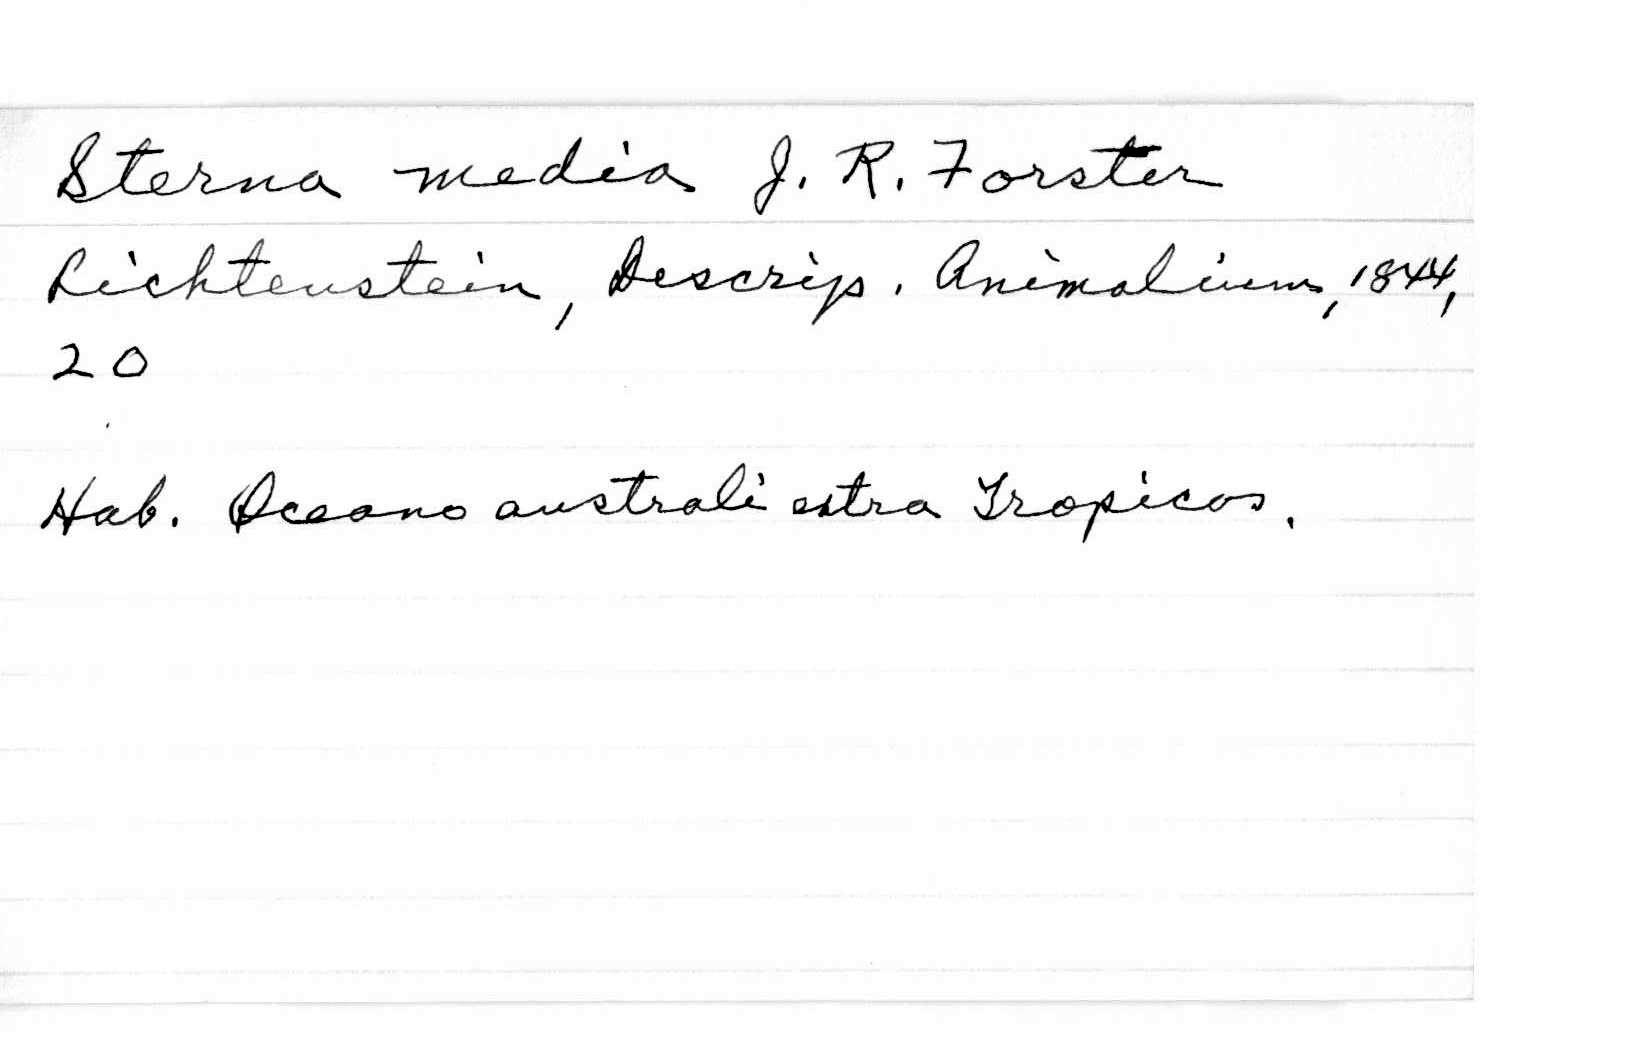 Sterna media J. R. Forster
Lichtenstein, Descrip. Animalium, 1844,
20
Hab. Oceano australi extra Tropicos.